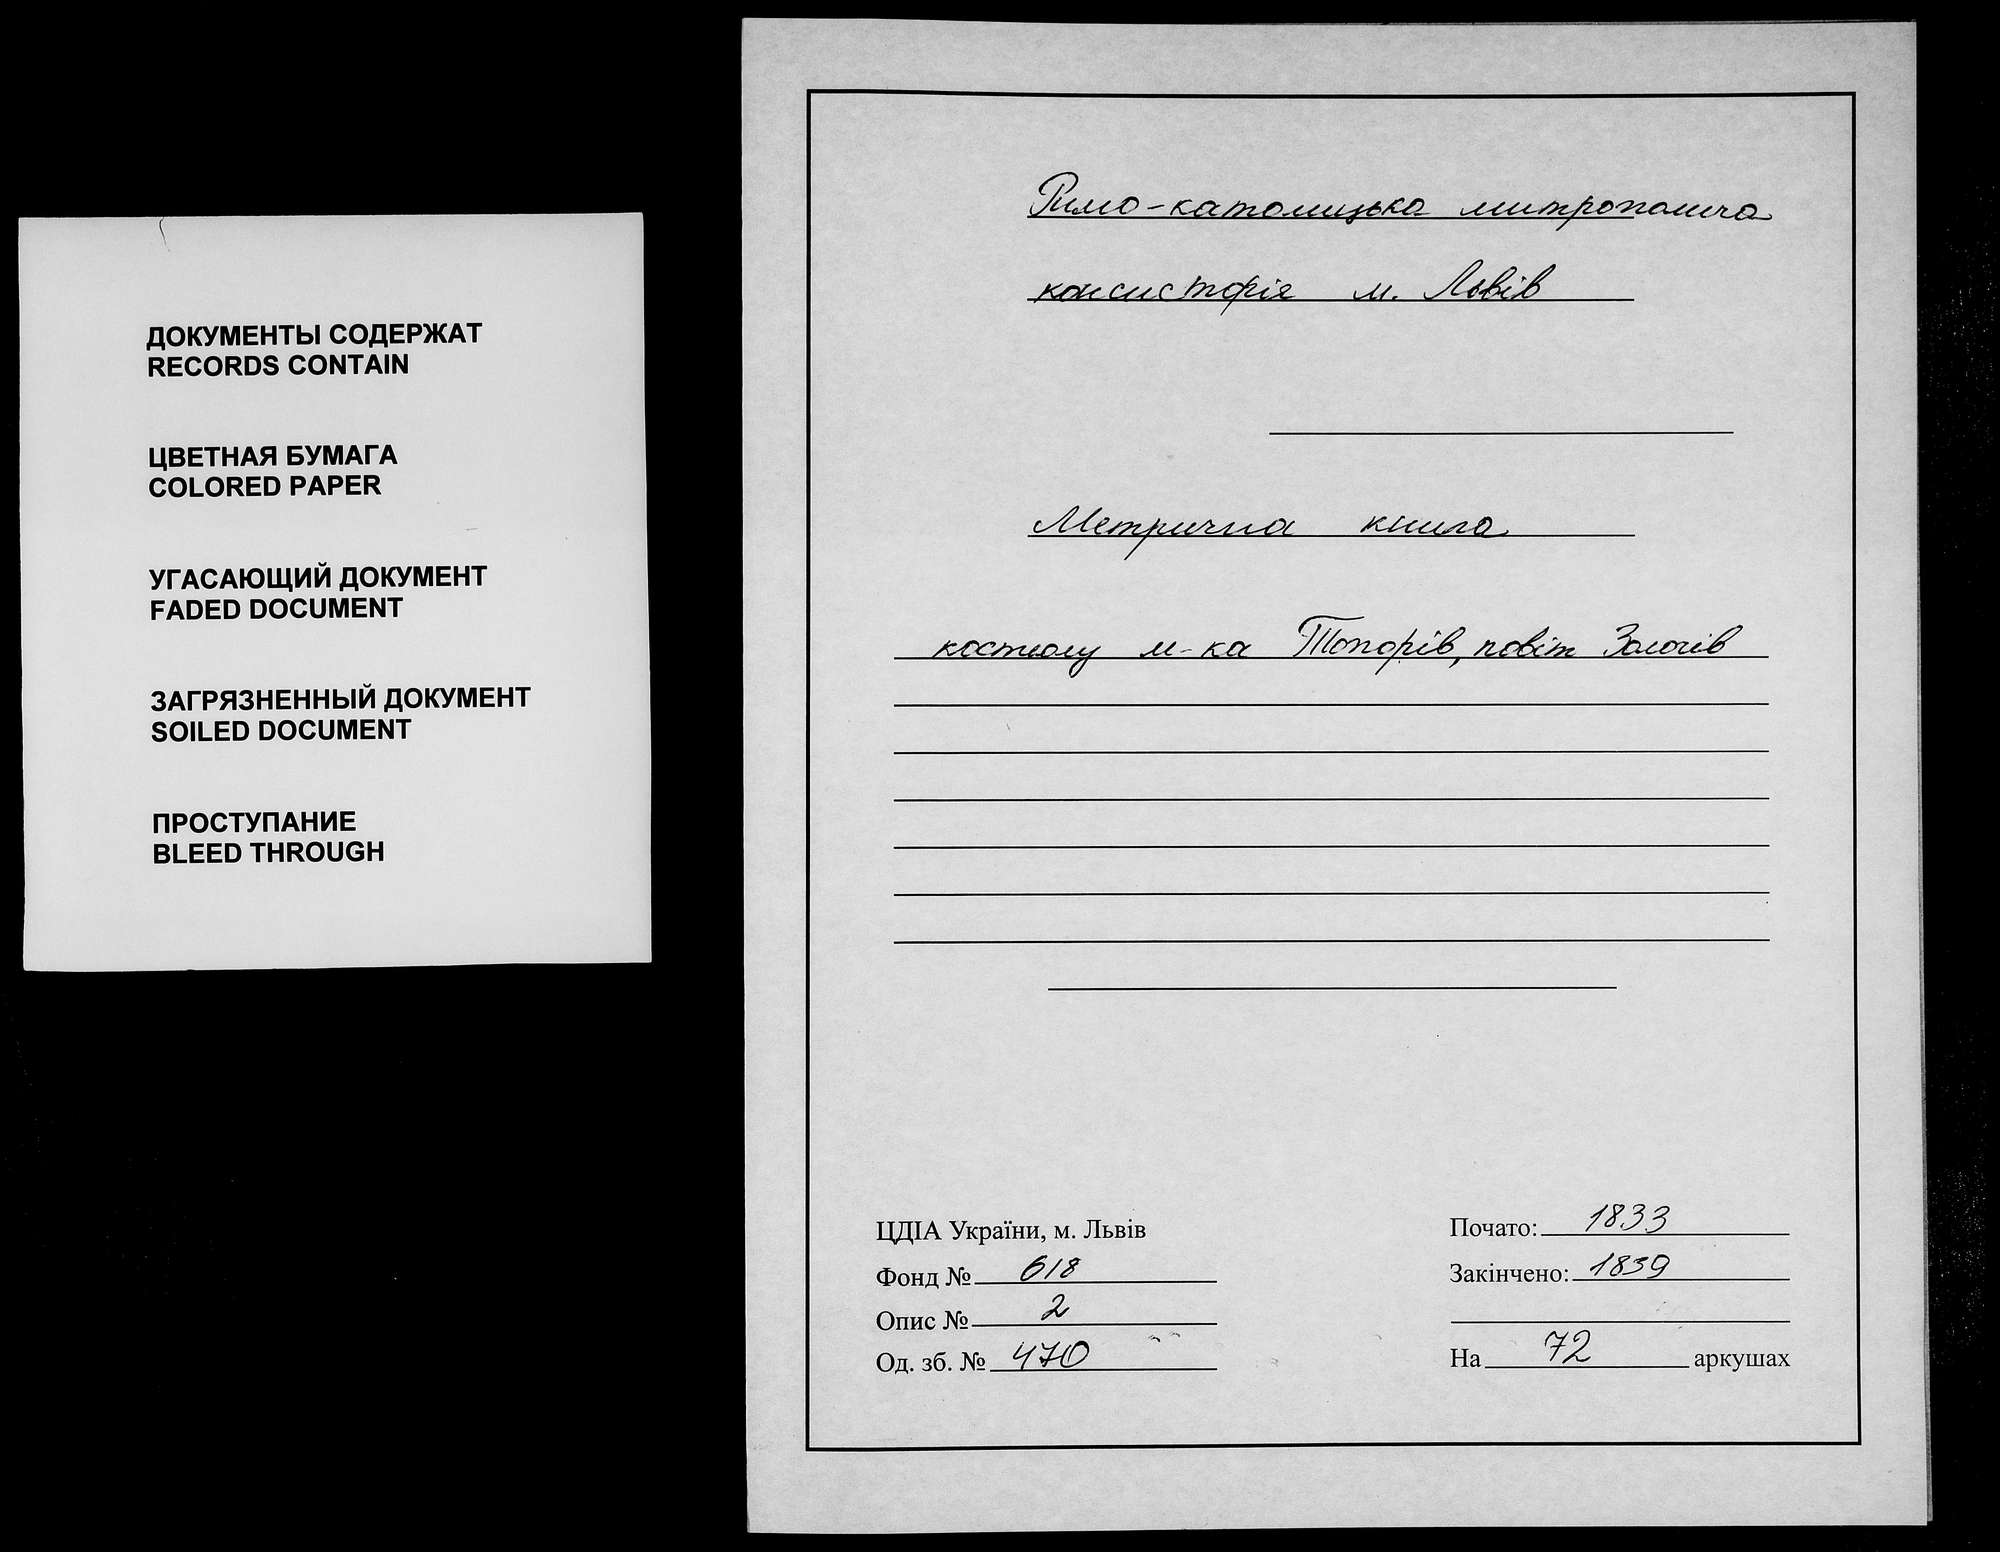 ДОКУМЕНТЫ СОДЕРЖАТ
RECORDS CONTAIN
ЦВЕТНАЯ БУМАГА
COLORED PAPER
УГАСАЮЩИЙ ДОКУМЕНТ
FADED DOCUMENT
ЗАГРЯЗНЕННЫЙ ДОКУМЕНТ
SOILED DOCUMENT
ПРОСТУПАНИЕ
BLEED THROUGH
Римо-католицька митрополича
консисторія м. Львів
Метрична книга
костьолу м-ка Топорів, повіт Золочів
ЦДІА України, м. Львів
Фонд № 618
Опис № 2
Од. зб. № 470
Почато: 1833
Закінчено: 1839
На 72 аркушах